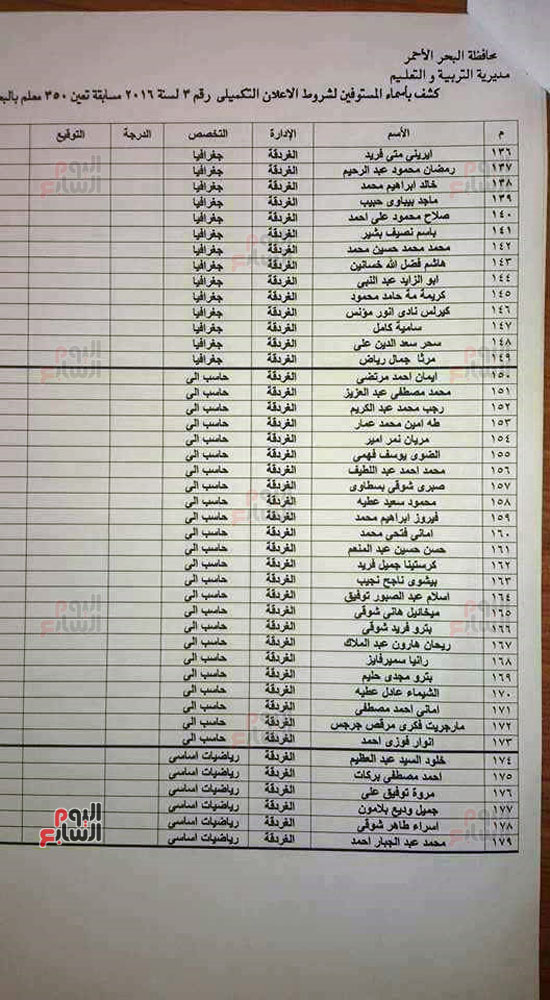 محافظة البحر الأحمر
مديرية التربية والتعليم
كشف بأسماء المستوفين لشروط الاعلان التكميلى رقم ٣ لسنة ٢٠١٦ مسابقة تعين ٣٥٠ معلم
م الأسم الإدارة التخصص الدرجة التوقيع
١٣٦ ايرينى متى فريد الغردقة جغرافيا
١٣٧ رمضان محمود عبد الرحيم الغردقة جغرافيا
١٣٨ خالد ابراهيم محمد الغردقة جغرافيا
١٣٩ ماجد بيباوى حبيب الغردقة جغرافيا
١٤٠ صلاح محمود على احمد الغردقة جغرافيا
١٤١ باسم نصيف بشير الغردقة جغرافيا
١٤٢ محمد محمد حسين محمد الغردقة جغرافيا
١٤٣ هاشم فضل الله خسانين الغردقة جغرافيا
١٤٤ ابو الزايد عبد النبى الغردقة جغرافيا
١٤٥ كريمة مة حامد محمود الغردقة جغرافيا
١٤٦ كيرلس نادى انور مؤنس الغردقة جغرافيا
١٤٧ سامية كامل الغردقة جغرافيا
١٤٨ سحر سعد الدين على الغردقة جغرافيا
١٤٩ مرثا جمال رياض الغردقة جغرافيا
١٥٠ ايمان احمد مرتضى الغردقة حاسب الى
١٥١ محمد مصطفى عبد العزيز الغردقة حاسب الى
١٥٢ رجب محمد عبد الكريم الغردقة حاسب الى
١٥٣ طه امين محمد عمار الغردقة حاسب الى
١٥٤ مريان نمر امير الغردقة حاسب الى
١٥٥ الضوى يوسف فهمى الغردقة حاسب الى
١٥٦ محمد احمد عبد اللطيف الغردقة حاسب الى
١٥٧ صبرى شوقى بسطاوى الغردقة حاسب الى
١٥٨ محمود سعيد عطيه الغردقة حاسب الى
١٥٩ فيروز ابراهيم محمد الغردقة حاسب الى
١٦٠ امانى فتحى محمد الغردقة حاسب الى
١٦١ حسن حسين عبد المنعم الغردقة حاسب الى
١٦٢ كرستينا جميل فريد الغردقة حاسب الى
١٦٣ بيشوى ناجح نجيب الغردقة حاسب الى
١٦٤ اسلام عبد الصبور توفيق الغردقة حاسب الى
١٦٥ ميخائيل هانى شوقى الغردقة حاسب الى
١٦٦ بترو فريد شوقى الغردقة حاسب الى
١٦٧ ريحان هارون عبد الملاك الغردقة حاسب الى
١٦٨ رانيا سميرفايز الغردقة حاسب الى
١٦٩ بترو مجدى حليم الغردقة حاسب الى
١٧٠ الشيماء عادل عطيه الغردقة حاسب الى
١٧١ امانى احمد مصطفى الغردقة حاسب الى
١٧٢ مارجريت فكرى مرقص جرجس الغردقة حاسب الى
١٧٣ انوار فوزى احمد الغردقة حاسب الى
١٧٤ خلود السيد عبد العظيم الغردقة رياضيات اساسى
١٧٥ احمد مصطفى بركات الغردقة رياضيات اساسى
١٧٦ مروة توفيق على الغردقة رياضيات اساسى
١٧٧ جميل وديع بلامون الغردقة رياضيات اساسى
١٧٨ اسراء طاهر شوقى الغردقة رياضيات اساسى
١٧٩ محمد عبد الجبار احمد الغردقة رياضيات اساسى
اليوم السابع